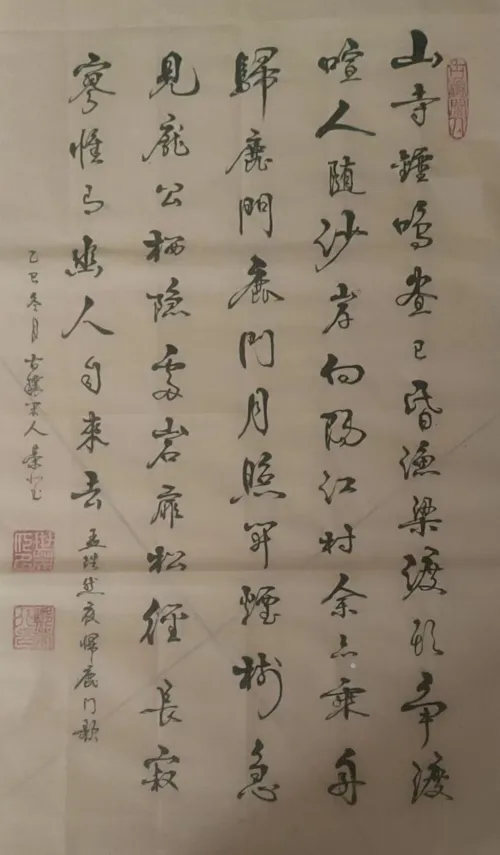 山寺鍾鳴晝已昏渔梁渡頭爭渡
喧人随沙岸向陽江村余亦乘舟
歸鹿門鹿門月照開煙樹忽
見龐公栖隐處岩扉松徑長寂
寥惟有幽人自來去 孟浩然夜歸鹿門歌
乙巳冬月古人